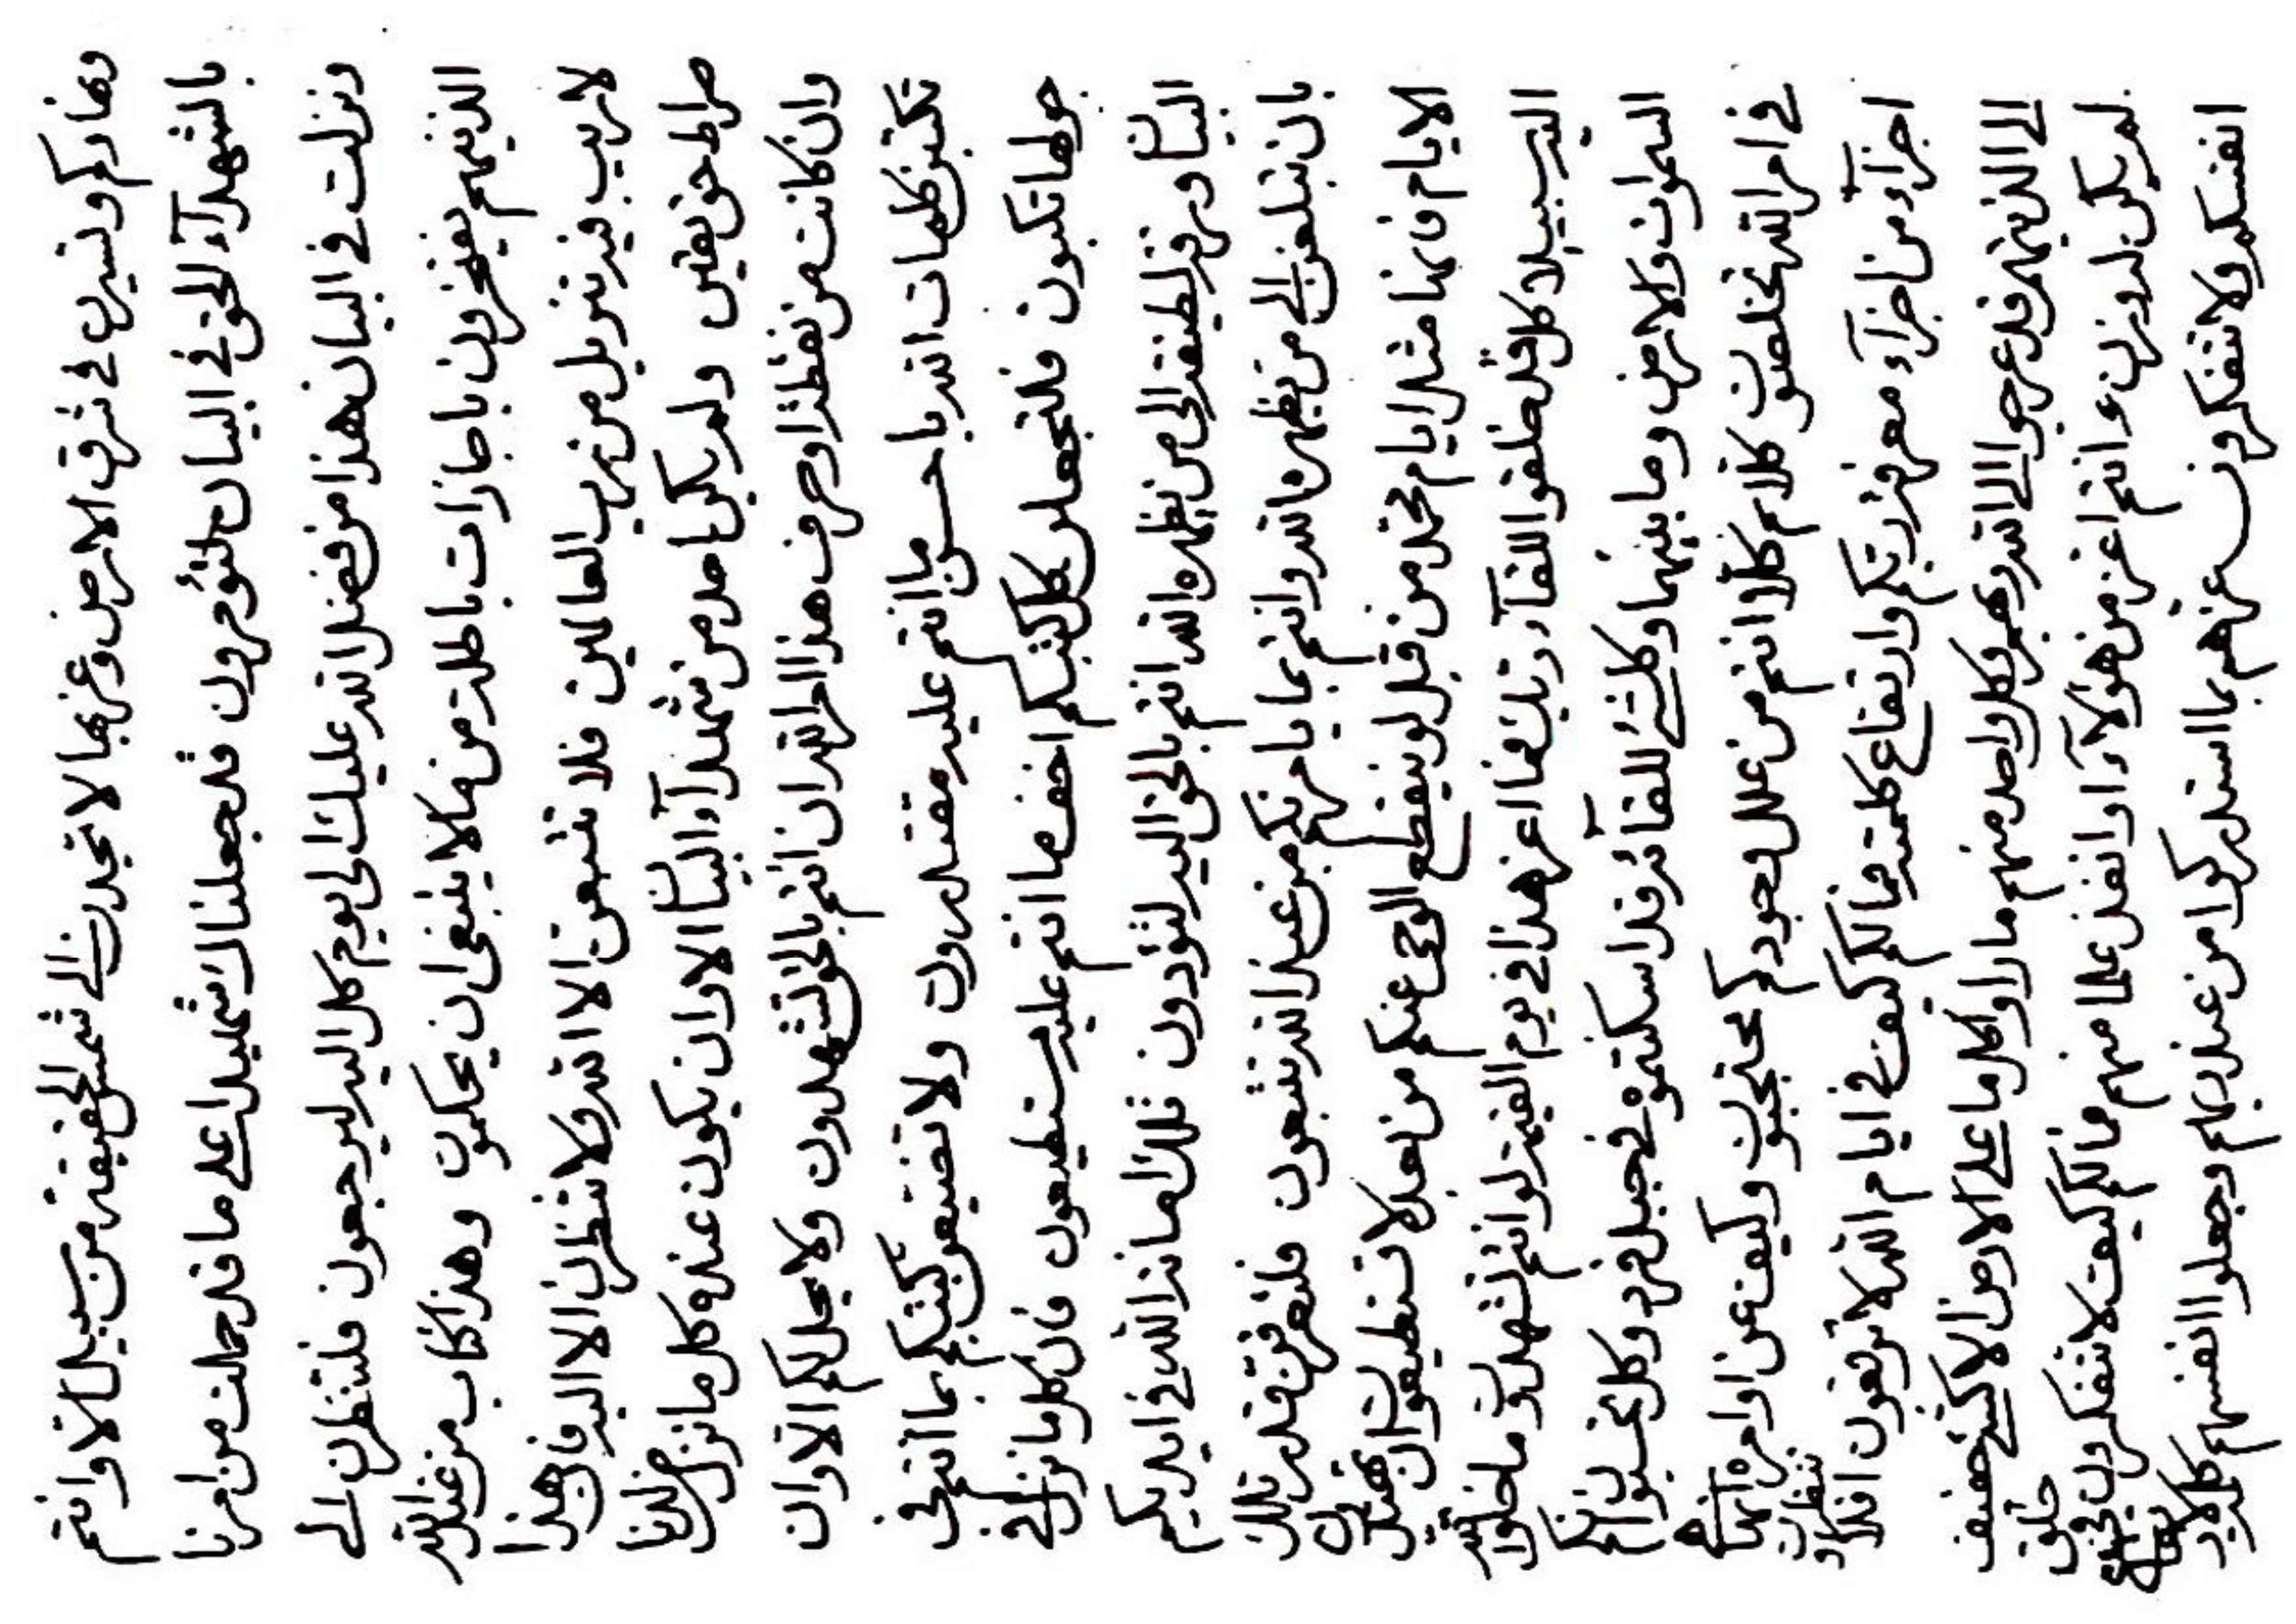 ونهاركم وتسيرن في شرق الارض وغربها لا تجدن الى شمس الحقيقة من سبيل الا وانتم
بالشهدآء الحق في البيان لتؤمرون قد جعلناك شهيدا على ما قد حملت من امرنا
ونزلت في البيان هذا من فضل الله عليك الى يوم كل اليه ليرجعون فلتنظرن الى
الذينهم يفتخرون باجازات باطلة من ما لا ينبغي ان يحكمون وهذا كتاب من عند الله
لا ريب فيه تنزيل من رب العالمين فلا تتبعن الا الله ولا تنظرن الا اليه فان هذا
صراط حق يقين ولم يكن احد من شهدآء البيان الا وان يكون عنده كل ما نزل من لدنا
وان كانت من نقطة او حرف هذا امر الله ان انتم بالحق لتشهدون ولا يحل لكم الا وان
تكتبن كلمات الله باحسن ما انتم عليه مقتدرون ولا تضيعن كتبكم بما انتم في
حولها تكبون فلتجعلن كل كتبكم اخف ما انتم عليه ستطيعون فان كل ما نزل في
البيان ورقة لطيفة الى من يظهره الله انتم بالحق اليه لتؤدون تلك امانة الله في ايديكم
بان تبلغن الى من يظهره الله وانتم بما يامرنكم من عند الله تتبعون فلتعرفن قدر تلك
الايام فانها مثل ايام محمد من قبل لو ينقطع الوحي عنكم من بعد لا تستطيعون ان تهتدن الى
الله سبيلا كل قد خلقوا للقآء ربك فما اعز هذا في يوم القيمة لو انتم لتشهدون ما خلق الله
السموات والارض وما بينهما وكلشئ للقآئه قد اسكنتموه في جبل فرد وكل تحسبون انكم
في امر الله تخلصون كلا ثم كلا انتم من علل وجودكم محتجبون وكيف عن اوامره انها
اجزآء من اجزآء معرفة ربكم وارتفاع كلمته فما لكم كيف في ايام الله لا ترتقون افلا تنظرون
الى الذينهم قد عرجوا الى الله ربهم وكل واحد منهم ما راوا كل ما على الارض الا كشئ خفيف
لم يكن له وزن وانتم اعز من هؤلآء او انفذ علما منهم فما لكم كيف لا تتفكرون في خلق
انفسكم ولا تتفكرون عن هم بما استدركوا من عند ربهم وجعلوا انفسهم